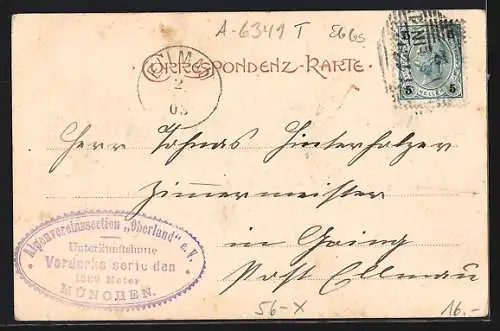 A-6341 T E66s
CORRESPONDENZ-KARTE.
2
03
5 5
HELLER
Herr Tohnas Hinterholzer
Zimmermeister
in Going
Post Ellmau
Alpenvereinssection „Oberland" e.V.
Unterkunftshütte
Vorderkaiserfelden
1389 Meter
MÜNCHEN.
56-X
16.-